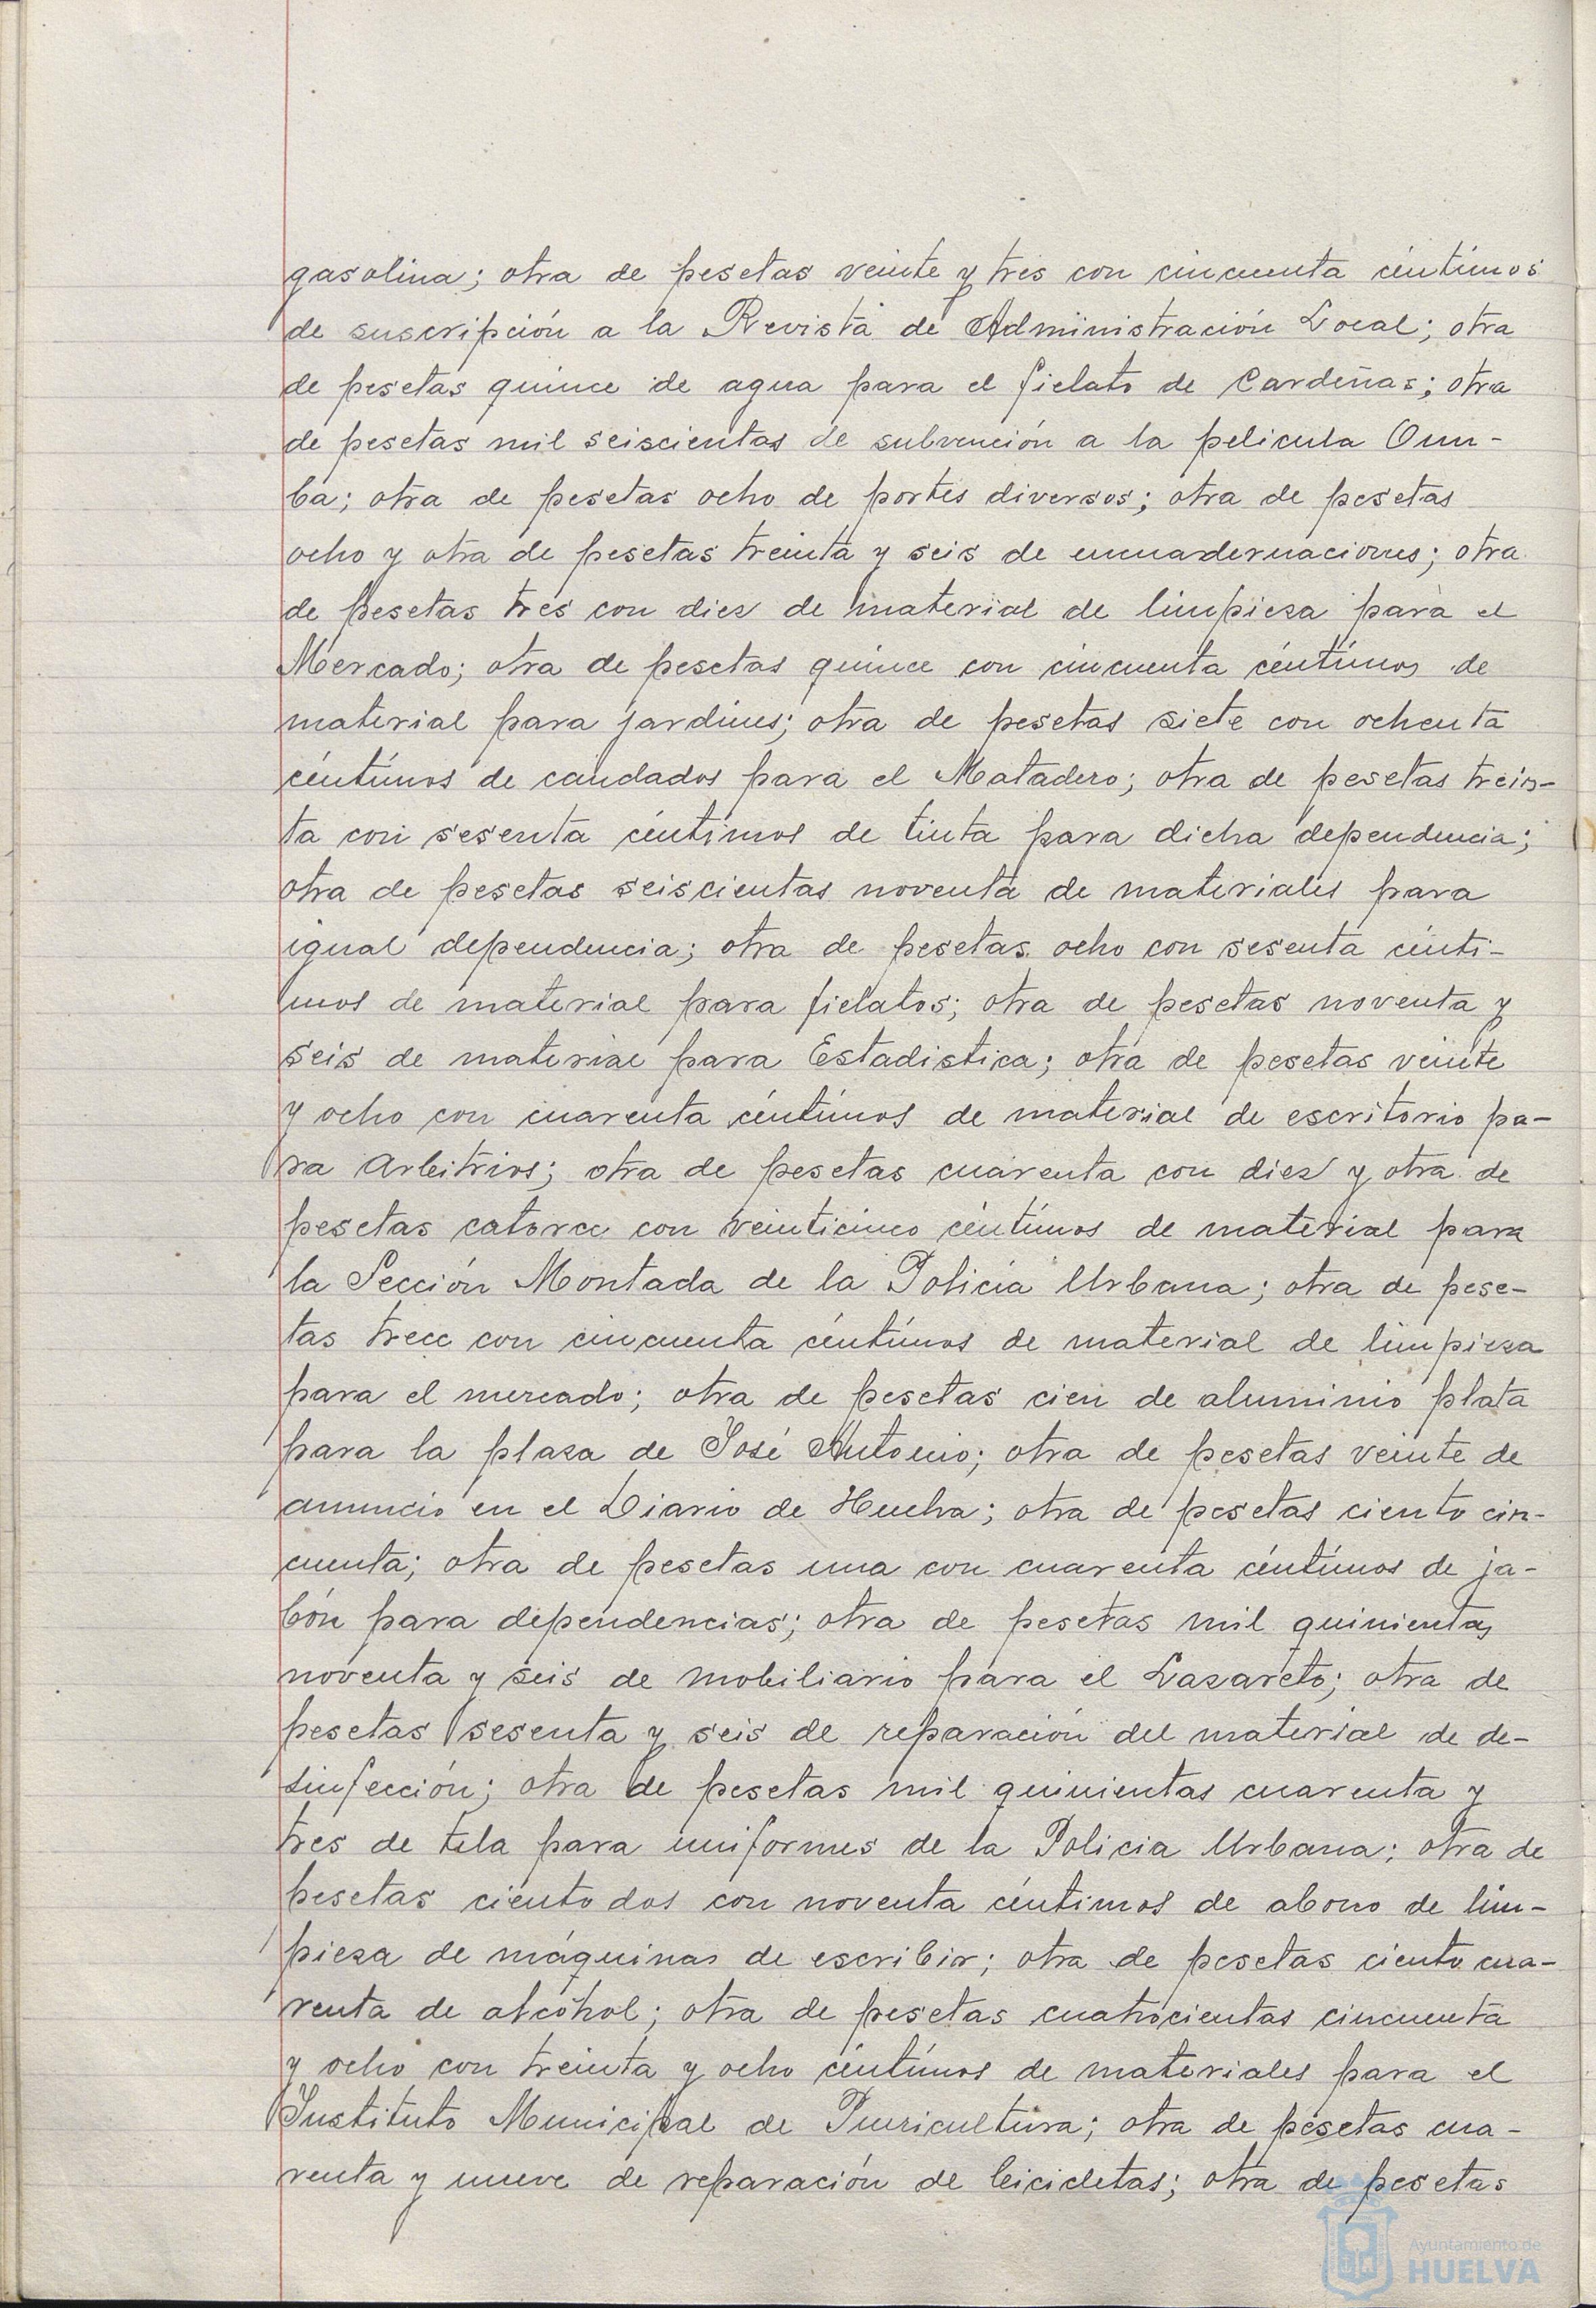 gasolina; otra de pesetas veinte y tres con cincuenta céntimos
de suscripción a la Revista de Administración Local; otra
de pesetas quince de agua para el fielato de Cardeñas; otra
de pesetas mil seiscientas de subvención a la pelicula Onu-
ba; otra de pesetas ocho de portes diversos; otra de pesetas
ocho y otra de pesetas treinta y seis de encuadernaciones; otra
de pesetas tres con diez de material de limpieza para el
Mercado; otra de pesetas quince con cincuenta céntimos de
material para jardines; otra de pesetas siete con ochenta
céntimos de candados para el Matadero; otra de pesetas trein-
ta con sesenta céntimos de tinta para dicha dependencia;
otra de pesetas seiscientas noventa de materiales para
igual dependencia; otra de pesetas ocho con sesenta cénti-
mos de material para fielatos; otra de pesetas noventa y
seis de material para Estadistica; otra de pesetas veinte
y ocho con cuarenta céntimos de material de escritorio pa-
ra Arbitrios; otra de pesetas cuarenta con diez y otra de
pesetas catorce con veinticinco céntimos de material para
la Sección Montada de la Policía Urbana; otra de pese-
tas trece con cincuenta céntimos de material de limpieza
para el mercado; otra de pesetas cien de aluminio plata
para la plaza de José Antonio; otra de pesetas veinte de
anuncio en el Diario de Huelva; otra de pesetas ciento cin-
cuenta; otra de pesetas una con cuarenta céntimos de ja-
bón para dependencias; otra de pesetas mil quinientas
noventa y seis de mobiliario para el Lazareto; otra de
pesetas sesenta y seis de reparación del material de de-
sinfección; otra de pesetas mil quinientas cuarenta y
tres de tela para uniformes de la Policia Urbana; otra de
pesetas ciento dos con noventa céntimos de abono de lim-
pieza de máquinas de escribir; otra de pesetas ciento cua-
renta de alcóhol; otra de pesetas cuatrocientas cincuenta
y ocho con treinta y ocho céntimos de materiales para el
Instituto Municipal de Puericultura; otra de pesetas cua-
renta y nueve de reparación de bicicletas; otra de pesetas
Ayuntamiento de
HUELVA